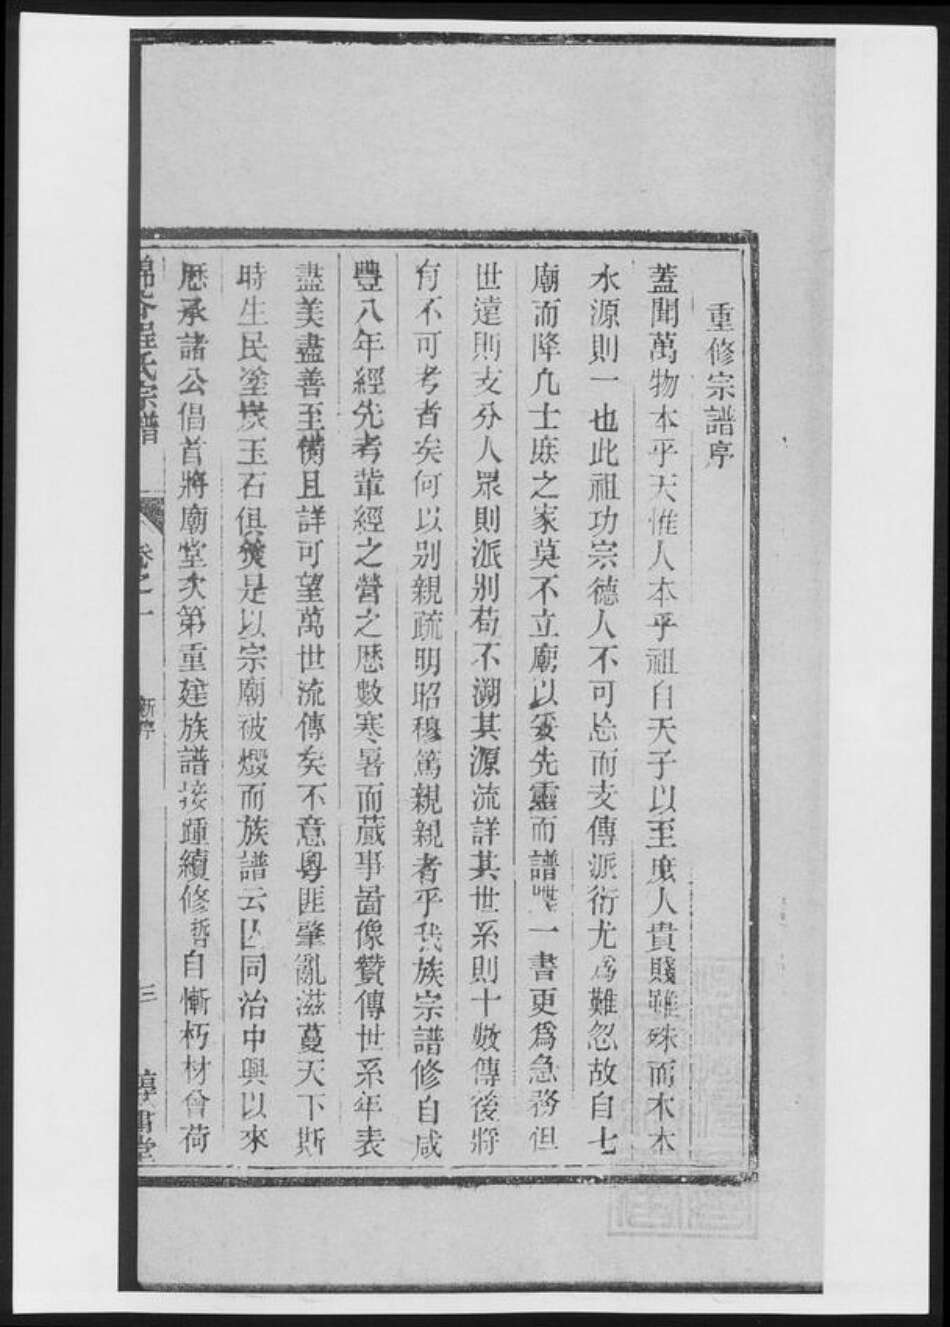 重修宗譜序
蓋聞萬物本乎天惟人本乎祖自天子以至庶人貴賤雖殊而木本
水源則一也此祖功宗德人不可忘而支傳派衍尤爲難忽故自七
廟而降凡士庶之家莫不立廟以妥先靈而譜一書更爲急務但
世遠則支分人眾則派別苟不溯其源流詳其世系則十數傳後將
有不可考者矣何以別親疏明昭穆篤親親者乎我族宗譜修自咸
豐八年經先考輩經之營之歷數寒暑而蕆事啚像贊傳世系年表
盡美盡善至備且詳可望萬世流傳矣不意粵匪肇亂滋蔓天下斯
時生民塗炭玉石俱焚是以宗廟被燬而族譜云亡同治中興以來
歷承諸公倡首將廟堂次第重建族譜接踵續修哲自慚朽材曾荷
程氏宗譜 卷之一 新序 三